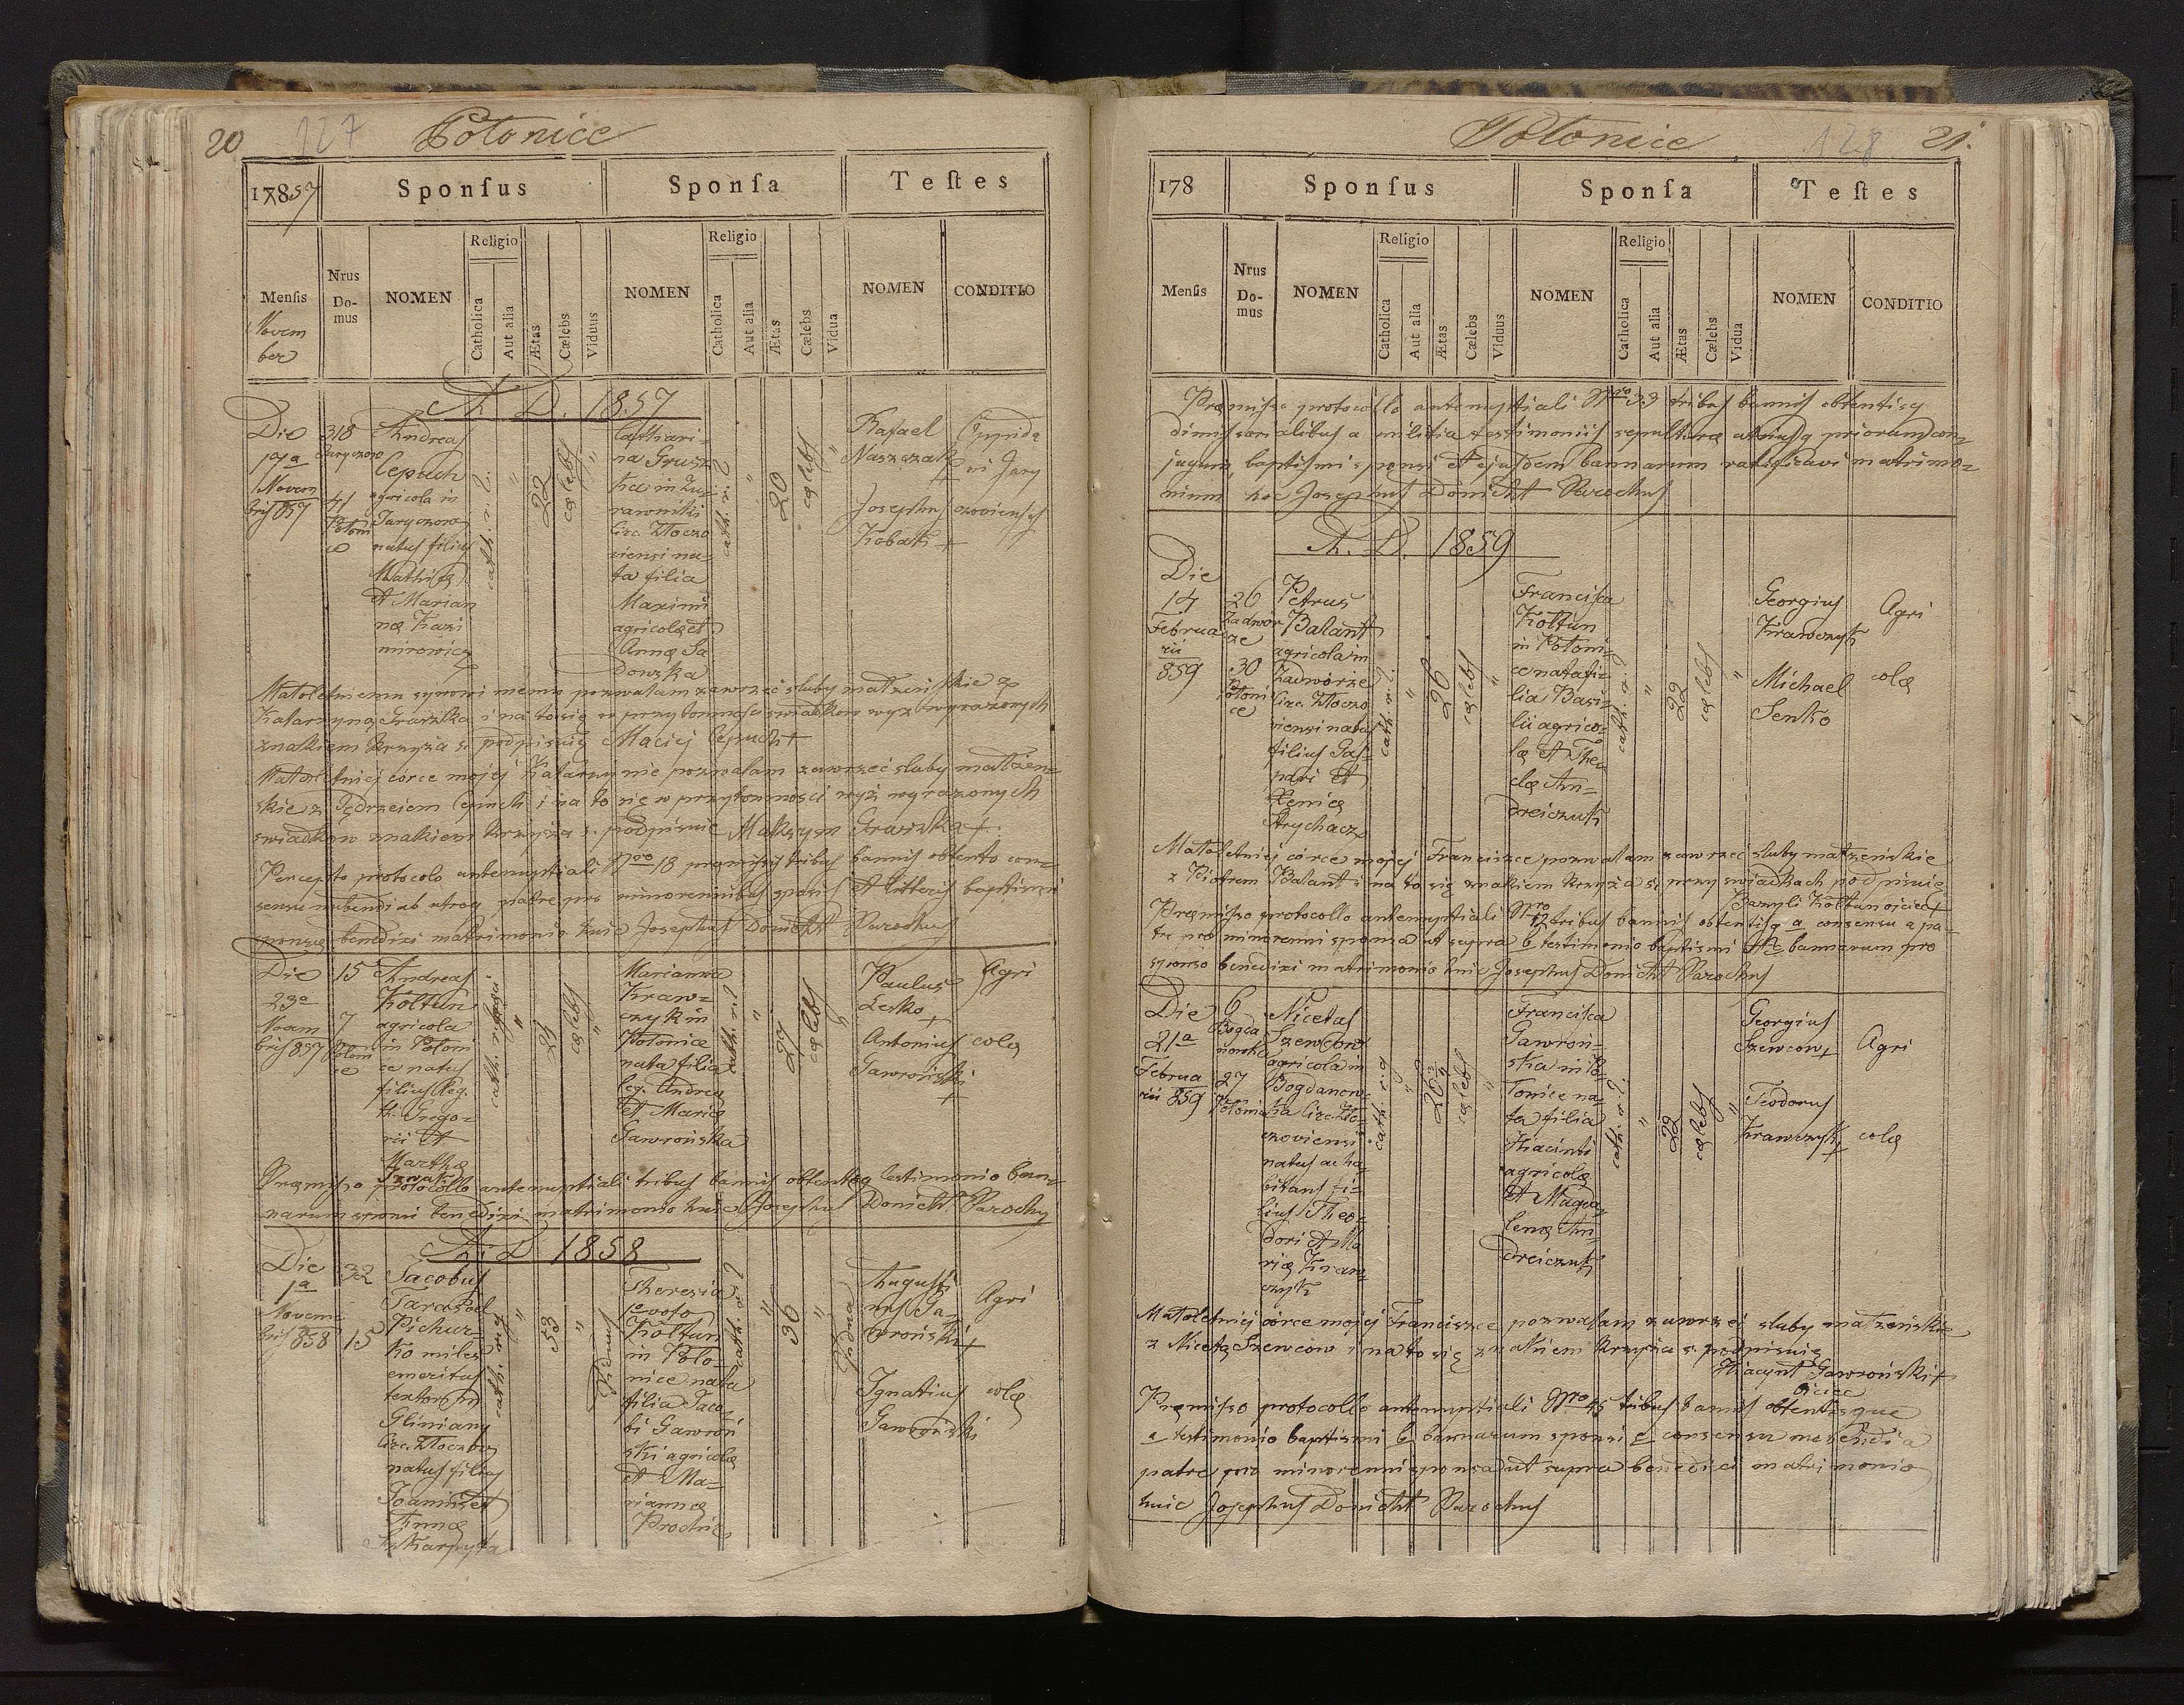 20 127 Połonice
17857 Sponſus Sponſa Teſtes
Menſis Nrus Do-mus NOMEN Religio Catholica Aut alia Ætas Cælebs Viduus NOMEN Religio Catholica Aut alia Ætas Cælebs Vidua NOMEN CONDITIO
Novem
ber
A. D. 1857
Die
17a
Novem
bris 857
318
Jaryczow
41
Połoni
ce
Andreas
Cepuch
agricola in
Jaryczow
natus filius
Mathiæ
et Marian
næ Kazi
mirowicz
cath. r. l.
"
22
cælebs
"
Cathari-
na Grusz
ka in Żu-
rawniki
Circ. Złoczo
viensi na-
ta filia
Maximi
agricolæ et
Annæ Sa
dowska
cath. r. l.
"
20
cælebs
"
Rafael
Naszczak
+
Josephus
Kobak +
Oppida
ni Jary
czoviensis
Małoletniemu synowi memu pozwalam zawrzeć sluby małżeńskie z
Katarzyną Gruszka i na to się w przytomności swiadkow wyż wyrażonych
znakiem krzyża s. podpisuię Maciej Cepuch +
Małoletniej corce mojej Katarzynie pozwalam zawrzeć sluby małżen-
skie z Jędrzeiem Cepuch i na to się w przytomnosci wyż wyrażonych
swiadkow znakiem krzyża s. podpisuię Maksym Gruszka +
Percepto protocolo antenuptiali Nro 18 præmissis tribus bannis obtento con-
sensu nubendi ab utroq patre pro minorennibus sponsis et litteris baptismi
sponsæ benedixi matrimonio huic Josephus Donicht Parochus
Die
23a
Novem
bris 857
15
7
Połoni
ce
Andreas
Kołtun
agricola
in Połoni
ce natus
filius leg.
th. Grego-
rii et
Marthæ
cælebs
"
Marianna
Kraw-
czyk in
Połonice
nata filia
leg. Andrea
et Mariæ
Gawrońska
cath. r. l.
"
27
cælebs
"
Paulus
Łesko +
Antonius
Gawroński
+
Agri
colæ
Præmisso protocollo antenuptiali tribus bannis obtentoq testimonio ban-
narum sponsi benedixi matrimonio huic Josephus Donicht Parochus
A. D. 1858
Die
1a
Novem
bris 858
32
15
Jacobus
Tarasoel
Pichur-
ko miles
emeritus
textor in
Gliniany
Circ. Złoczow
natus filius
Joannis et
Annæ
"
53
"
Viduus
Theresia
1o voto
Kołtun
in Poło-
nice nata
filia Jaco-
bi Gawroń
ski agricolæ
et Ma-
riannæ
cath. r. l.
"
36
"
Vidua
Augusti
nus Ga
wroński +
Ignatius
Gawroński
Agri
colæ
Połonice 128 21.
178 Sponſus Sponſa Teſtes
Menſis Nrus Do-mus NOMEN Religio Catholica Aut alia Ætas Cælebs Viduus NOMEN Religio Catholica Aut alia Ætas Cælebs Vidua NOMEN CONDITIO
Præmisso protocollo antenuptiali Nro 33 tribus bannis obtentisq
dimissorialibus a militia testimoniis sepulturæ utriusq priorum con-
jugum, baptismi sponsi et ejusdem bannarum ratificavi matrimo-
nium hoc Josephus Donicht Parochus
A. D. 1859
Die
14
Februa
rii
859
26
Zadwór
ze
30
Połoni
ce
Petrus
Balant
agricola in
Zadworze
Circ. Złoczo
viensi natus
filius Gas-
pari et
Xeniæ
Strychacz
cath. r. l.
"
26
cælebs
"
Francisca
Kołtun
in Połoni-
ce nata fi-
lia Basi-
lii agrico-
læ et The
clæ An-
dreiczuk
cath. r. l.
"
22
cælebs
"
Georgius
Krawczyk
Michael
Senko
Agri
colæ
Małoletniej córce mojej Franciszce pozwalam zawrzeć sluby małżeńskie
z Piotrem Balant i na to się znakiem krzyża s. przy swiadkach podpisuię
Bazyli Kołtun ojciec +
Præmisso protocollo antenuptiali Nro 12 tribus bannis obtentisq a consensu a pa-
tre pro minorenni sponsa ut supra b testimonio baptismi et bannarum pro
sponso benedixi matrimonio huic Josephus Donicht Parochus
Die
21a
Februa
rii 859
6
Bogda
nowka
27
Połonice
Nicetas
Szewcow
agricola in
Bogdanow-
ka Circ. Zło-
czoviensi
natus ac ha-
bitans fi-
lius Theo-
dori et Ma
riæ Kraw-
czyk
cath. r. g.
"
26
cælebs
"
Francisca
Gawroń-
ska in Po-
łonice na-
ta filia
Hiacinti
agricolæ
et Magda
lenæ An-
dreiczuk
cath. r. l.
"
22
cælebs
"
Georgius
Szewcow +
Teodorus
Krawczyk +
Agri
colæ
Małoletniej córce mojej Franciszce pozwalam zawrzeć sluby małżeńskie
z Nicetą Szewcow i na to się znakiem krzyża s. podpisuię
Hiacynt Gawroński +
ojciec
Præmisso protocollo antenuptiali Nro 45 tribus bannis obtentisque
a testimonio baptismi b bannarum sponsi c consensu nubendi a
patre pro minorenni sponsa ut supra benedixi matrimonio
huic Josephus Donicht Parochus